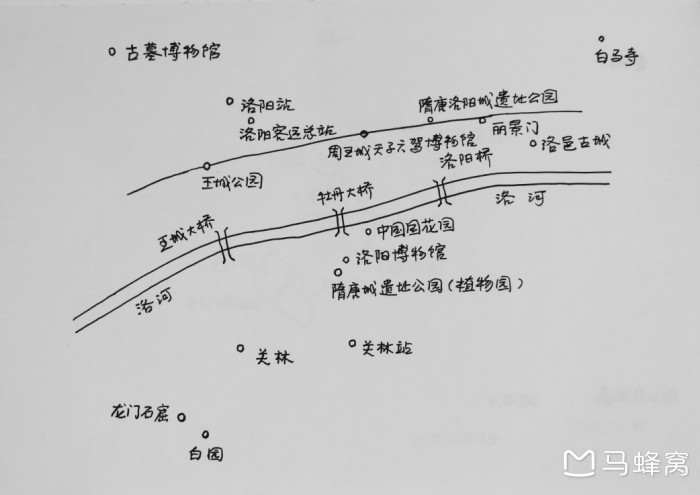 古墓博物馆
白马寺
洛阳站
洛阳客运总站
隋唐洛阳城遗址公园
周王城天子六驾博物馆
丽景门
洛邑古城
王城公园
洛阳桥
牡丹大桥
洛河
王城大桥
中国国花园
洛阳博物馆
隋唐城遗址公园(植物园)
洛河
关林
关林站
龙门石窟
白园
马蜂窝